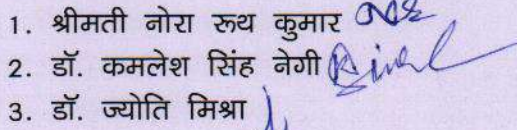 1. श्रीमती नोरा रूथ कुमार
2. डॉ. कमलेश सिंह नेगी
3. डॉ. ज्योति मिश्रा